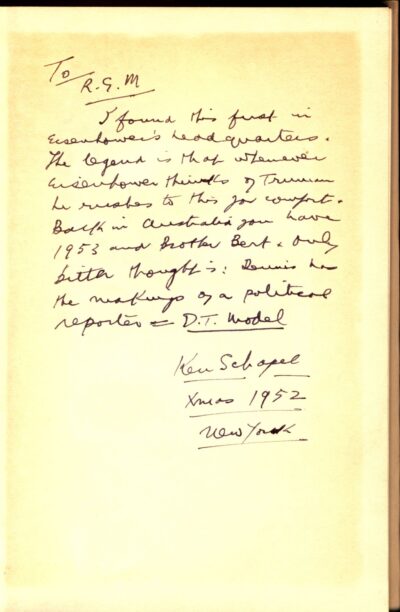 To
R.G.M
I found this first in
Eisenhower's headquarters.
The legend is that whenever
Eisenhower thinks of Truman
he rushes to this for comfort.
Back in Australia you have
1953 and Brother Bert. Only
bitter thought is: Dennis has
the makings of a political
reporter = D.T. model
Ken Schapel
Xmas 1952
New York